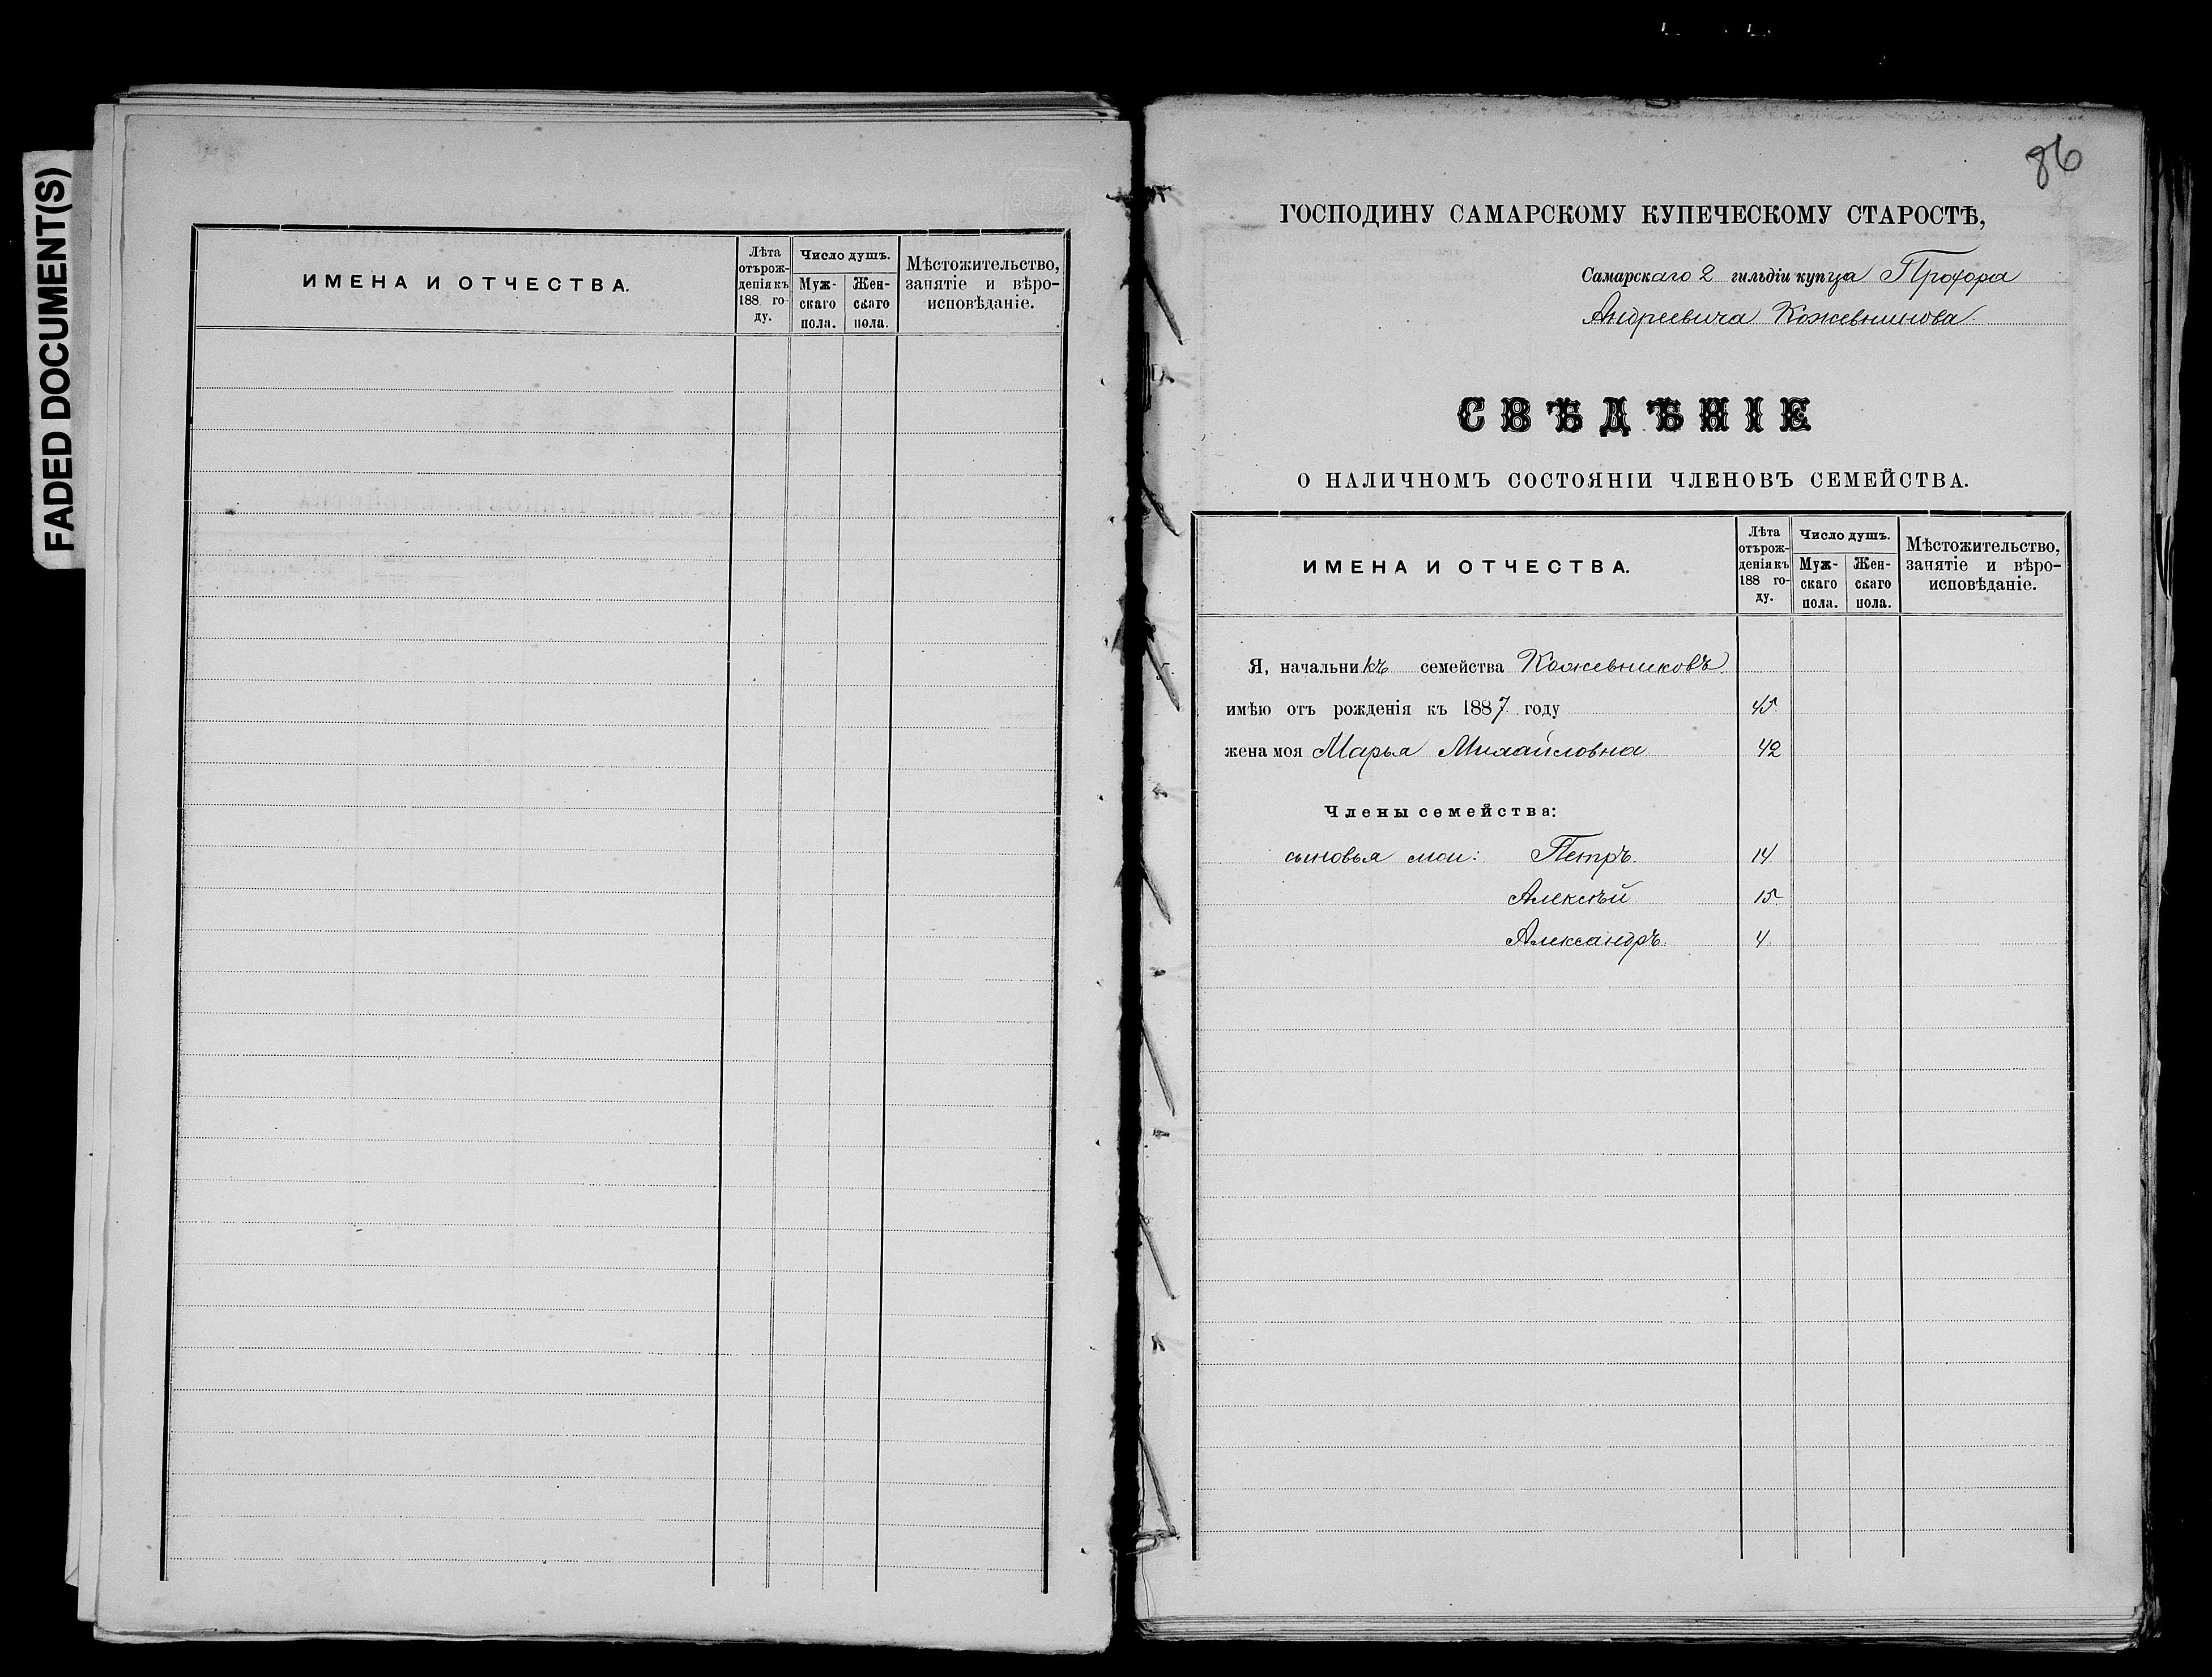 FADED DOCUMENT(S)
ИМЕНА И ОТЧЕСТВА.
Лѣта
отърож-
денія къ
188 го-
ду.
Число душъ.
Муж-
скаго
пола.
Жен-
скаго
пола.
Мѣстожительство,
занятіе и вѣро-
исповѣданіе.
86
ГОСПОДИНУ САМАРСКОМУ КУПЕЧЕСКОМУ СТАРОСТѢ,
Самарскаго 2 гильдіи купца Профора
Андреевича Кожевникова
СВѢДѢНІЕ
О НАЛИЧНОМЪ СОСТОЯНІИ ЧЛЕНОВЪ СЕМЕЙСТВА.
ИМЕНА И ОТЧЕСТВА.
Лѣта
отърож-
денія къ
188 го-
ду.
Число душъ.
Муж-
скаго
пола.
Жен-
скаго
пола.
Мѣстожительство,
занятіе и вѣро-
исповѣданіе.
Я, начальникъ семейства Кожевниковъ
имѣю отъ рожденія къ 1887 году 45
жена моя Марья Михайловна 42
Члены семейства:
сыновья мои: Петръ. 14
Алексѣй 15
Александръ. 4